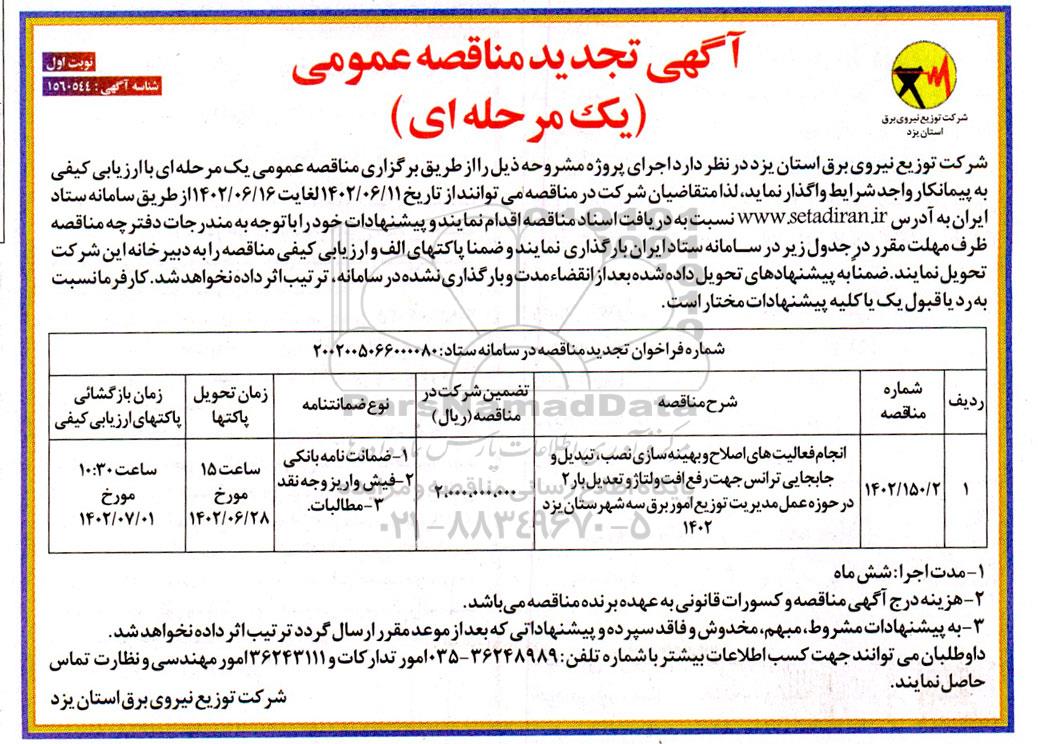 آگهی تجدید مناقصه عمومی
(یک مرحله ای)
نوبت اول
شناسه آگهی : ۱۵۶۰۵۴۴
شرکت توزیع نیروی برق
استان یزد
شرکت توزیع نیروی برق استان یزد در نظر دارد اجرای پروژه مشروحه ذیل را از طریق برگزاری مناقصه عمومی یک مرحله ای با ارزیابی کیفی
به پیمانکار واجد شرایط واگذار نماید، لذا متقاضیان شرکت در مناقصه می توانند از تاریخ ۱۴۰۲/۰۶/۱۱ لغایت ۱۴۰۲/۰۶/۱۶ از طریق سامانه ستاد
ایران به آدرس www.setadiran.ir نسبت به دریافت اسناد مناقصه اقدام نمایند و پیشنهادات خود را با توجه به مندرجات دفترچه مناقصه
ظرف مهلت مقرر در جدول زیر در سامانه ستاد ایران بارگذاری نمایند و ضمنا پاکتهای الف و ارزیابی کیفی مناقصه را به دبیرخانه این شرکت
تحویل نمایند. ضمناً به پیشنهادهای تحویل داده شده بعد از انقضاء مدت و بارگذاری نشده در سامانه، ترتیب اثر داده نخواهد شد. کارفرما نسبت
به رد یا قبول یک یا کلیه پیشنهادات مختار است.
شماره فراخوان تجدید مناقصه در سامانه ستاد: ۲۰۰۲۰۰۵۰۶۶۰۰۰۰۸۰
ردیف
شماره
مناقصه
شرح مناقصه
تضمین شرکت در
مناقصه (ریال)
نوع ضمانتنامه
زمان تحویل
پاکتها
زمان بازگشائی
پاکتهای ارزیابی کیفی
۱
۱۴۰۲/۱۵۰/۲
انجام فعالیت های اصلاح و بهینه سازی نصب، تبدیل و
جابجایی ترانس جهت رفع افت ولتاژ و تعدیل بار ۲
در حوزه عمل مدیریت توزیع امور برق سه شهرستان یزد
۱۴۰۲
۲.۰۰۰.۰۰۰.۰۰۰
۱-ضمانت نامه بانکی
۲-فیش واریز وجه نقد
۳-مطالبات.
ساعت ۱۵
مورخ
۱۴۰۲/۰۶/۲۸
ساعت ۱۰:۳۰
مورخ
۱۴۰۲/۰۷/۰۱
ParsNamadData
۰۲۱-۸۸۳۴۹۶۷۰-۵
۱-مدت اجرا: شش ماه
۲-هزینه درج آگهی مناقصه و کسورات قانونی به عهده برنده مناقصه می باشد.
۳-به پیشنهادات مشروط، مبهم، مخدوش و فاقد سپرده و پیشنهاداتی که بعد از موعد مقرر ارسال گردد ترتیب اثر داده نخواهد شد.
داوطلبان می توانند جهت کسب اطلاعات بیشتر با شماره تلفن: ۳۶۲۴۸۹۸۹-۰۳۵ امور تدارکات و ۳۶۲۴۳۱۱۱ امور مهندسی و نظارت تماس
حاصل نمایند.
شرکت توزیع نیروی برق استان یزد